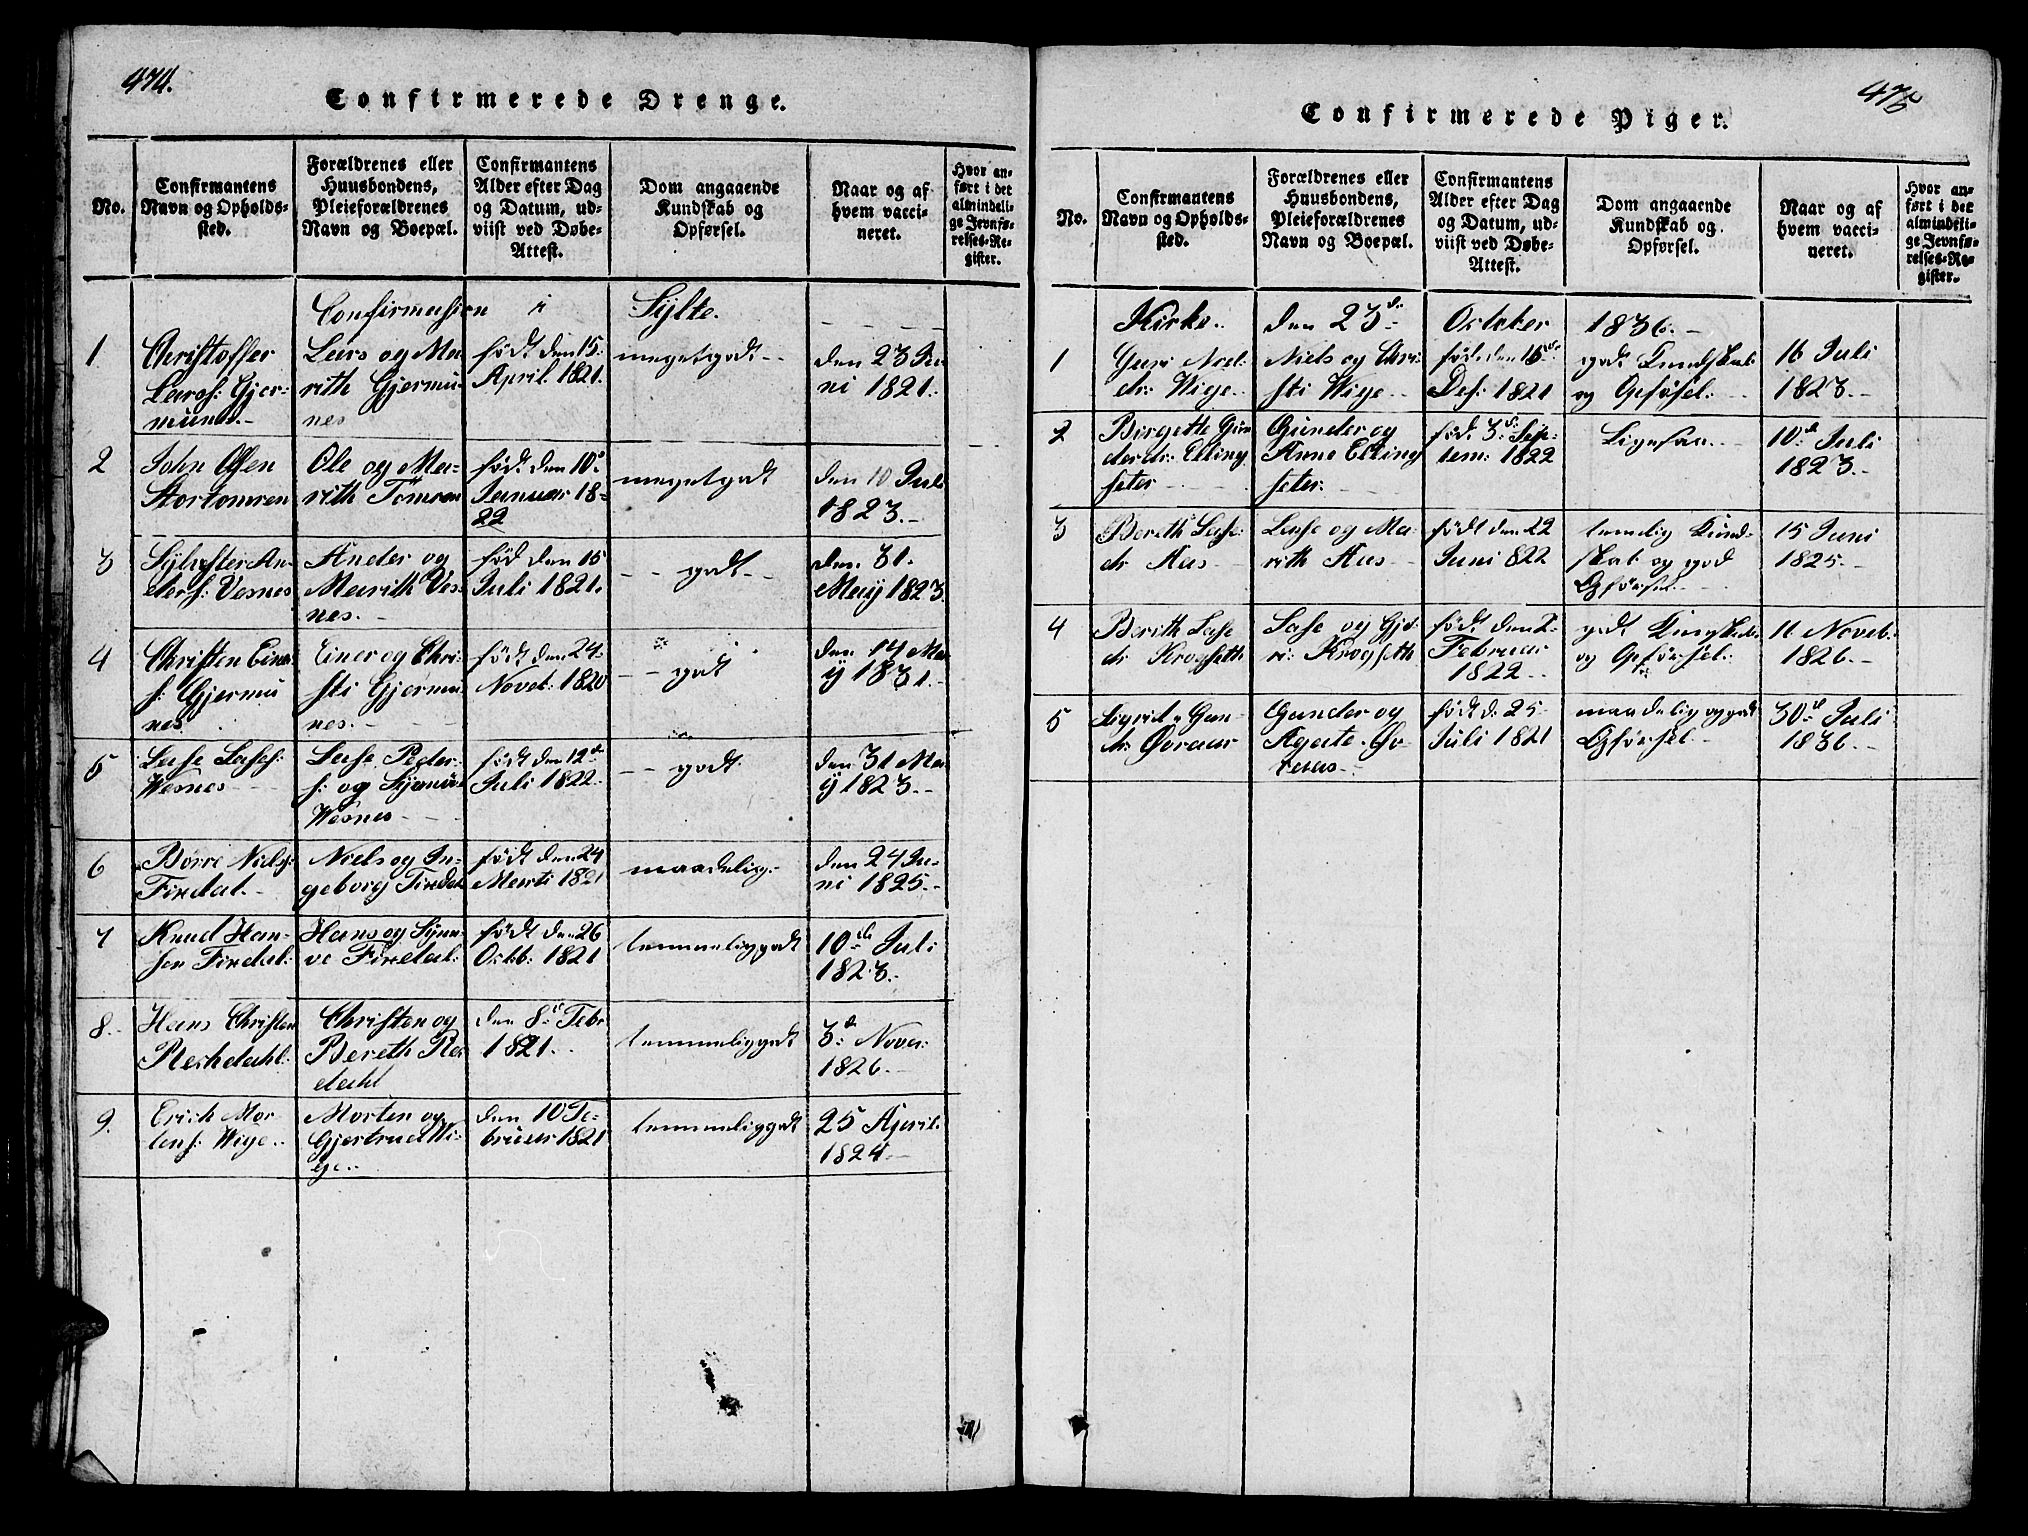 474.
Confirmerede Drenge.
No.
Confirmantens
Navn og Opholds-
sted.
Forældrenes eller
Huusbondens,
Pleieforældrenes
Navn og Boepæl.
Confirmantens
Alder efter Dag
og Datum, ud-
viist ved Døbe-
Attest.
Dom angaaende
Kundskab og
Opførsel.
Naar og af
hvem vacci-
neret.
Hvor an-
ført i det
almindeli-
ge Jevnfø-
relses-Re-
gister.
Confirmasion i Sylte.
1
Christoffer
Larss: Gjer-
munds.
Lars og Ma-
rith Gjermu-
nes
født den 15:
April 1821.
megetgodt
den 23 Ju-
ni 1821.
2
John Olsen
Stortomren
Ole og Ma-
rith Tömren
født den 10.
Januar 18-
22
megetgodt
den 10 Juli
1823.
3
Sylvester An-
ders: Vesnes
Ander og
Marith Ves-
nes.
fød den 15
Juli 1821.
godt
den 31.
Maij 1823.
4
Christen Einer
s: Gjermu
nes
Einer og Chri-
sti Gjermu-
nes.
født den 24-
Novet: 1820
godt
den 14 Ma-
ij 1831.
5
Lasse Lasses:
Wesnes
Lasse Peder
s: og Synnøve
Wesnes
født den 12te
Juli 1822.
godt
den 31 Ma-
ij 1823.
6
Børre Niels:
Tindal.
Niels og In-
geborg Tindal
født den 24
Marti 1821
maadelig
den 24 Ju-
ni 1825.
7
Knud Han-
sen Tindal:
Hans og Synn-
ve Tindal:
født den 26
Octb: 1821
temmeliggodt
10de Juli
1823.
8.
Hans Christen
Rekdahl:
Christen og
Bereth Rek
dahl
den 8de Febr
1821.
temmeliggodt
3d: Nover:
1826.
9.
Erich Mor-
tens: Wige.
Morten og
Gjertrud Wi-
ge.
den 10 Fe-
bruar 1821
temmeliggodt
25 April.
1824
475
Confirmerede Piger.
No.
Confirmantens
Navn og Opholds-
sted.
Forældrenes eller
Huusbondens,
Pleieforældrenes
Navn og Boepæl.
Confirmantens
Alder efter Dag
og Datum, ud-
viist ved Døbe-
Attest.
Dom angaaende
Kundskab og
Opførsel.
Naar og af
hvem vacci-
neret.
Hvor an-
ført i det
almindeli-
ge Jevnfø-
relses-Re-
gister.
Kirke. den 23d: October 1836.
1
Guri Niel-
dr: Wige.
Niels og Chri-
sti Wige
fød den 16de
Des: 1821
godt Kundskab
og Opføsel:
16 Juli
1823.
2
Birgette Gun
derdr: Elling
seter
Gunder og
Anne Elling
seter:
fød. 3d: Sep-
tem: 1822
Ligesaa
10d Juli
1823.
3
Bereth Lasse-
dr. Aas
Lasse og Ma-
rith Aas
født den 22
Juni 822
temelig Kund-
skab og god
Opførsel.
15 Juni
1825.
4
Berith Lasse
dr. Krogseth
Lasse og Gjø-
ri: Krogseth
født den 2-
Februar
1822
godt Kunskab
og Opførsel:
11 Noveb:
1826.
5
Sigrid Gun-
dr: Øveraas
Gunder og
Agate. Øv-
reaas.
født d: 25
Juli 1821
maadelig og godt
Opførsel
30d Juli
1836.